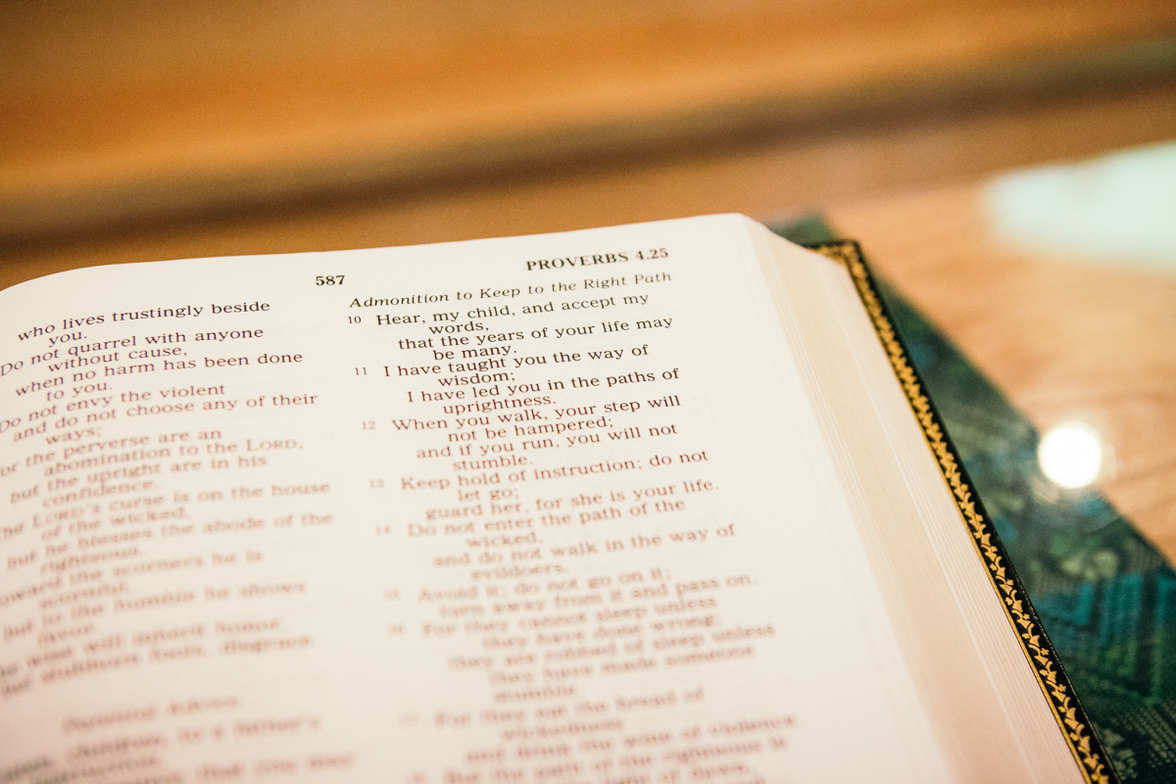 587
PROVERBS 4.25
who lives trustingly beside
you.
Do not quarrel with anyone
without cause,
when no harm has been done
to you.
Do not envy the violent
and do not choose any of their
ways;
for the perverse are an
abomination to the LORD,
but the upright are in his
confidence.
The LORD's curse is on the house
of the wicked,
but he blesses the abode of the
righteous.
Toward the scorners he is
scornful,
but to the humble he shows
favor.
The wise will inherit honor,
but stubborn fools, disgrace.
Parental Advice
children, to a father's
that you may
Admonition to Keep to the Right Path
10 Hear, my child, and accept my
words,
that the years of your life may
be many.
11 I have taught you the way of
wisdom;
I have led you in the paths of
uprightness.
12 When you walk, your step will
not be hampered;
and if you run, you will not
stumble.
13 Keep hold of instruction; do not
let go;
guard her, for she is your life.
14 Do not enter the path of the
wicked,
and do not walk in the way of
evildoers.
15 Avoid it; do not go on it;
turn away from it and pass on.
16 For they cannot sleep unless
they have done wrong;
they are robbed of sleep unless
they have made someone
stumble.
17 For they eat the bread of
wickedness
and drink the wine of violence.
But the path of the righteous is
light of dawn,